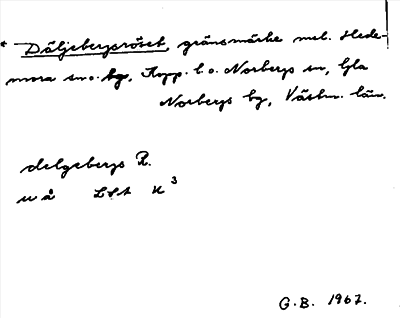 * Däljebergsröset, gränsmärke mel. Hede-
mora sn o. bg, Kopp. l. o. Norbergs sn, Gla
Norbergs bg, Västm. län.
delgebergs R.
u å LSA K³
G.B. 1967.